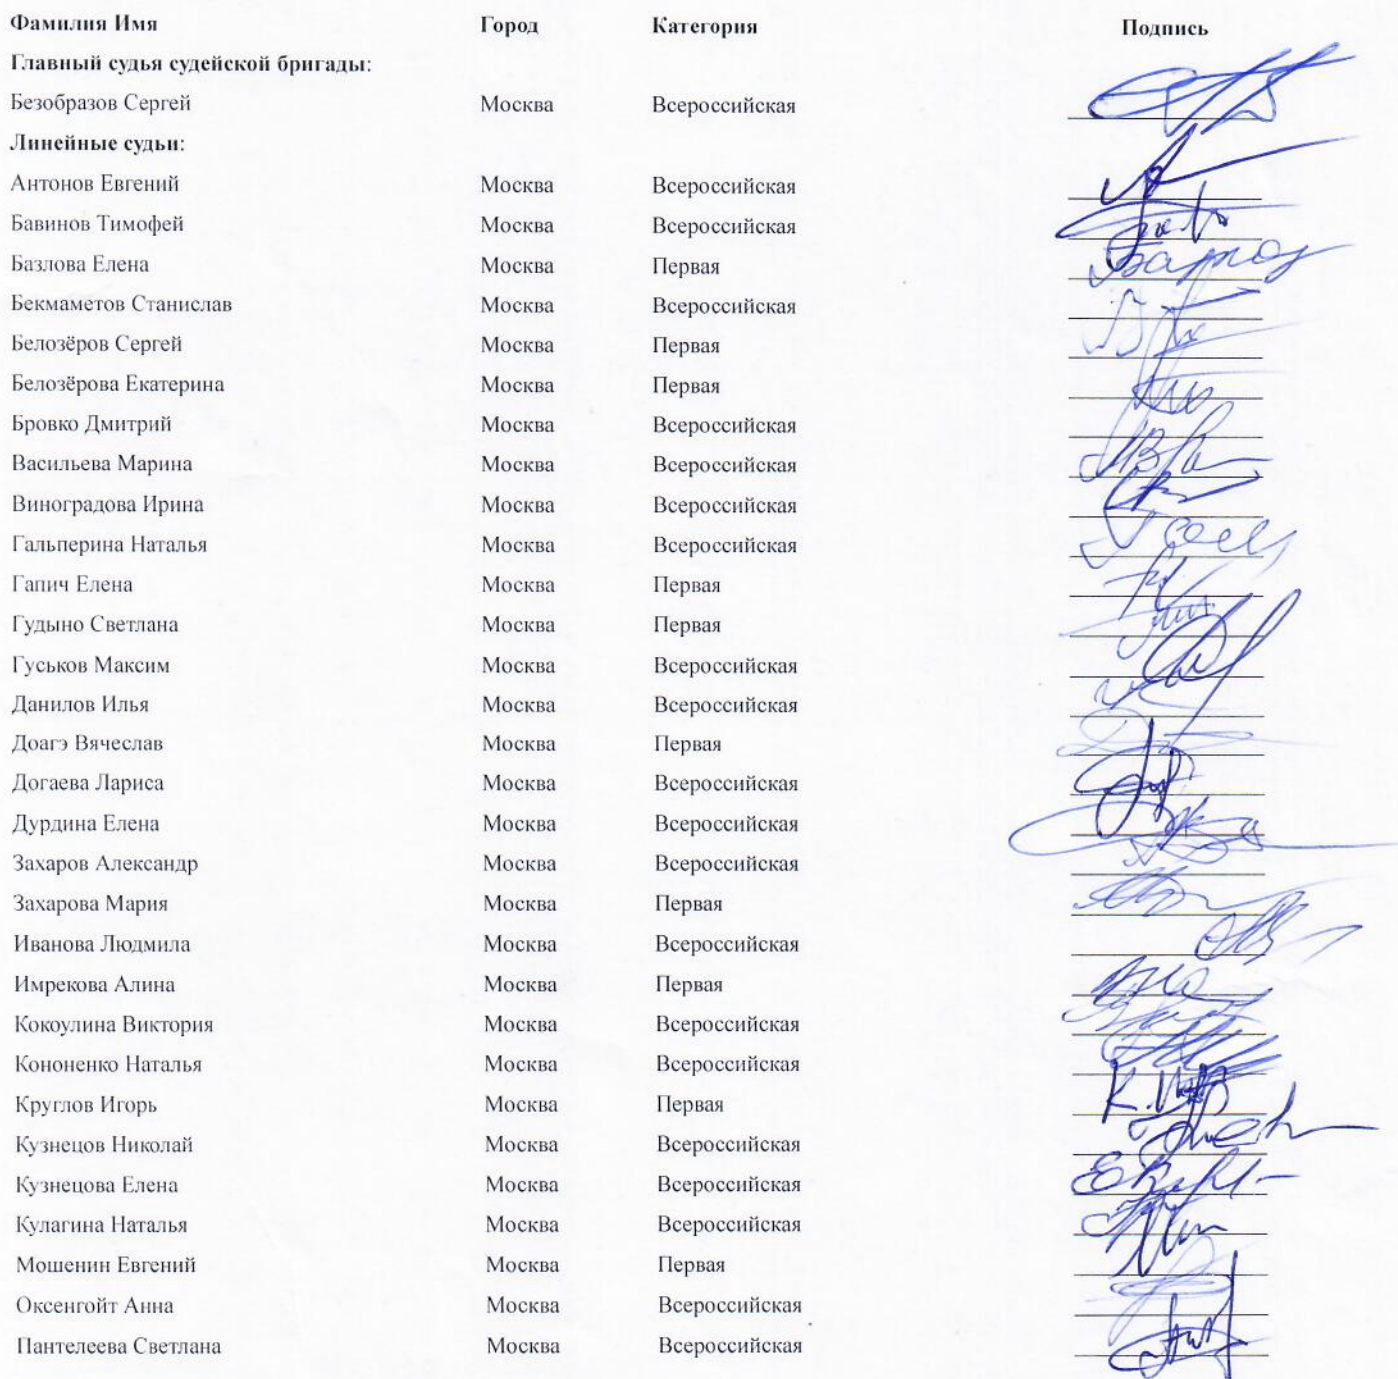 Фамилия Имя Город Категория Подпись
Главный судья судейской бригады:
Безобразов Сергей Москва Всероссийская
Линейные судьи:
Антонов Евгений Москва Всероссийская
Бавинов Тимофей Москва Всероссийская
Базлова Елена Москва Первая
Бекмаметов Станислав Москва Всероссийская
Белозёров Сергей Москва Первая
Белозёрова Екатерина Москва Первая
Бровко Дмитрий Москва Всероссийская
Васильева Марина Москва Всероссийская
Виноградова Ирина Москва Всероссийская
Гальперина Наталья Москва Всероссийская
Гапич Елена Москва Первая
Гудыно Светлана Москва Первая
Гуськов Максим Москва Всероссийская
Данилов Илья Москва Всероссийская
Доагэ Вячеслав Москва Первая
Догаева Лариса Москва Всероссийская
Дурдина Елена Москва Всероссийская
Захаров Александр Москва Всероссийская
Захарова Мария Москва Первая
Иванова Людмила Москва Всероссийская
Имрекова Алина Москва Первая
Кокоулина Виктория Москва Всероссийская
Кононенко Наталья Москва Всероссийская
Круглов Игорь Москва Первая
Кузнецов Николай Москва Всероссийская
Кузнецова Елена Москва Всероссийская
Кулагина Наталья Москва Всероссийская
Мошенин Евгений Москва Первая
Оксенгойт Анна Москва Всероссийская
Пантелеева Светлана Москва Всероссийская